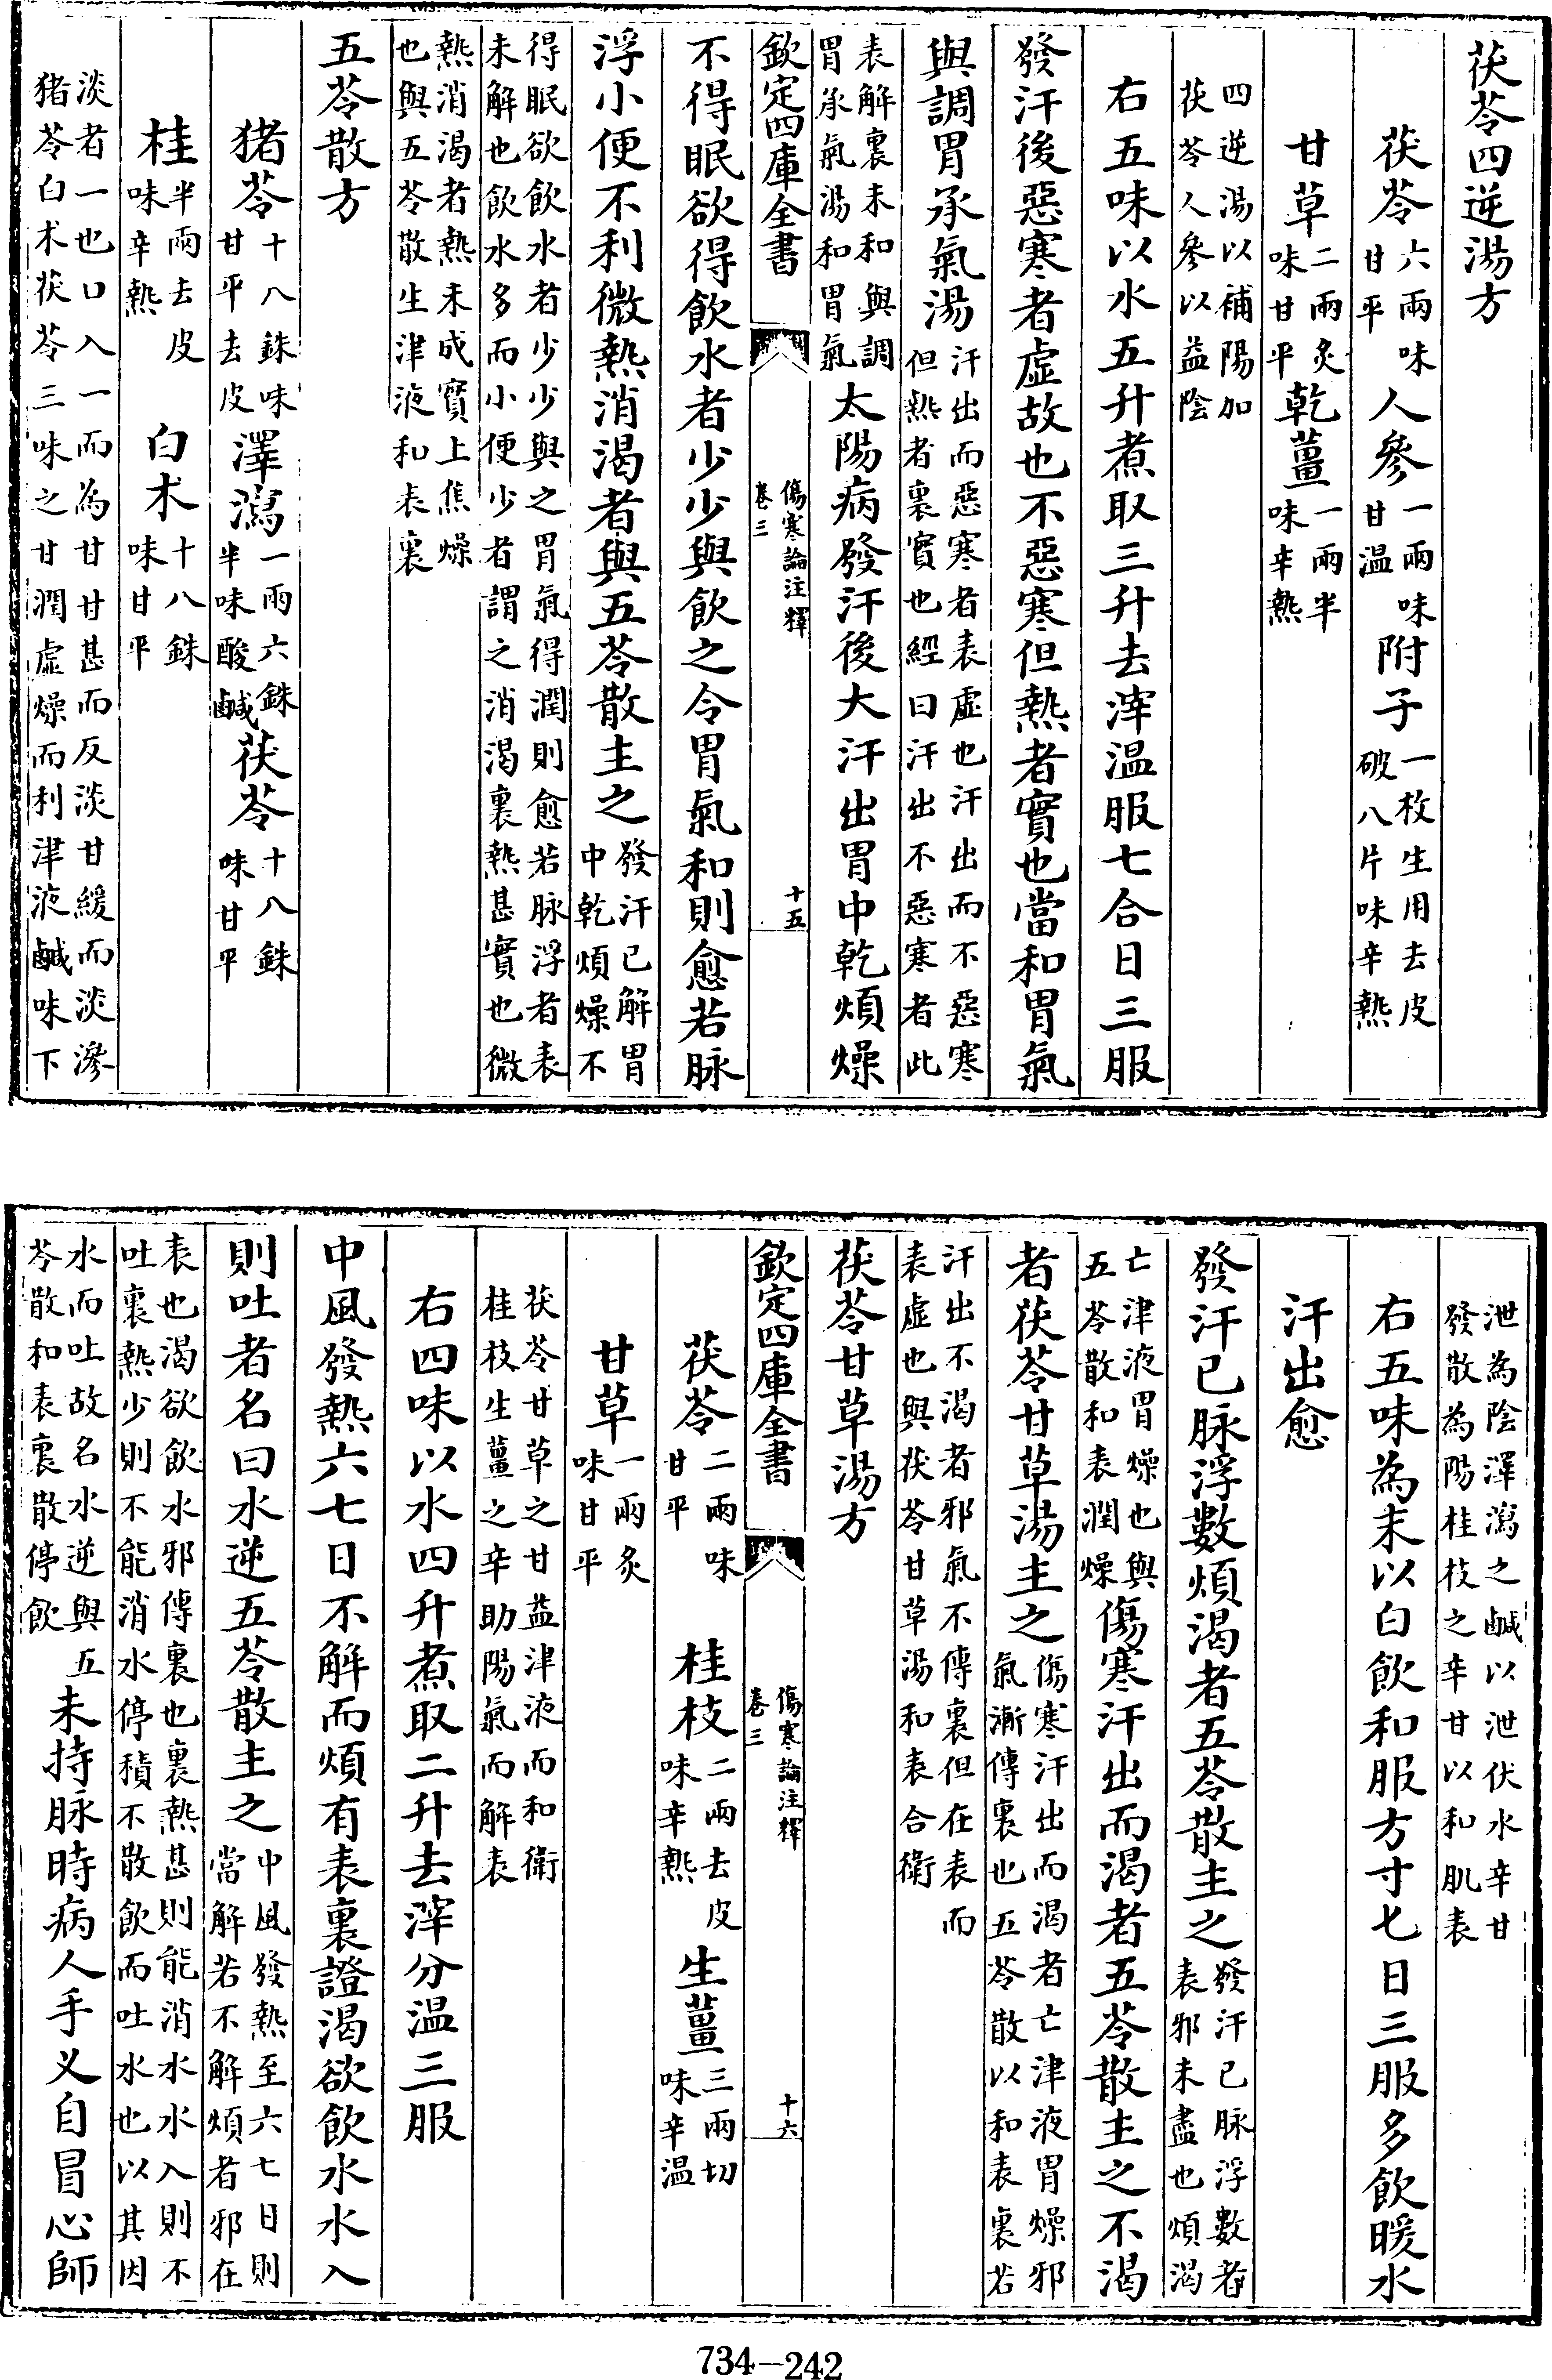 茯苓四逆湯方
茯苓六兩味甘平人參一兩味甘温附子一枚生用去皮破八片味辛熱
甘草二兩炙味甘平乾薑一兩半味辛熱
四逆湯以補陽加茯苓人參以益陰
右五味以水五升煮取三升去滓温服七合日三服
發汗後惡寒者虛故也不惡寒但熱者實也當和胃氣
與調胃承氣湯汗出而惡寒者表虛也汗出而不惡寒但熱者裏實也經曰汗出不惡寒者此
表解裏未和與調胃承氣湯和胃氣太陽病發汗後大汗出胃中乾煩燥
欽定四庫全書 傷寒論注釋卷三 十五
不得眠欲得飲水者少少與飲之令胃氣和則愈若脉
浮小便不利微熱消渴者與五苓散主之發汗已解胃中乾煩燥不
得眠欲飲水者少少與之胃氣得潤則愈若脉浮者表未解也飲水多而小便少者謂之消渴裏熱甚實也微
熱消渴者熱未成實上焦燥也與五苓散生津液和表裏
五苓散方
豬苓十八銖味甘平去皮澤瀉一兩六銖半味酸鹹茯苓十八銖味甘平
桂半兩去皮味辛熱 白术十八銖味甘平
淡者一也口入一而為甘甘甚而反淡甘緩而淡滲豬苓白术茯苓三味之甘潤虛燥而利津液鹹味下
泄為陰澤瀉之鹹以泄伏水辛甘發散為陽桂枝之辛甘以和肌表
右五味為末以白飲和服方寸匕日三服多飲暖水
汗出愈
發汗已脉浮數煩渴者五苓散主之發汗已脉浮數者表邪未盡也煩渴
亡津液胃燥也與五苓散和表潤燥傷寒汗出而渴者五苓散主之不渴
者茯苓甘草湯主之傷寒汗出而渴者亡津液胃燥邪氣漸傳裏也五苓散以和表裏若
汗出不渴者邪氣不傳裏但在表而表虛也與茯苓甘草湯和表合衛
茯苓甘草湯方
欽定四庫全書 傷寒論注釋卷三 十六
茯苓二兩味甘平 桂枝二兩去皮味辛熱生薑三兩切味辛温
甘草一兩炙味甘平
茯苓甘草之甘益津液而和衛桂枝生薑之辛助陽氣而解表
右四味以水四升煮取二升去滓分温三服
中風發熱六七日不解而煩有表裏證渴欲飲水水入
則吐者名曰水逆五苓散主之中風發熱至六七日則當解若不解煩者邪在
表也渴欲飲水邪傳裏也裏熱甚則能消水水入則不吐裏熱少則不能消水停積不散飲而吐水也以其因
水而吐故名水逆與五苓散和表裏散停飲未持脉時病人手义自冒心師
734-242